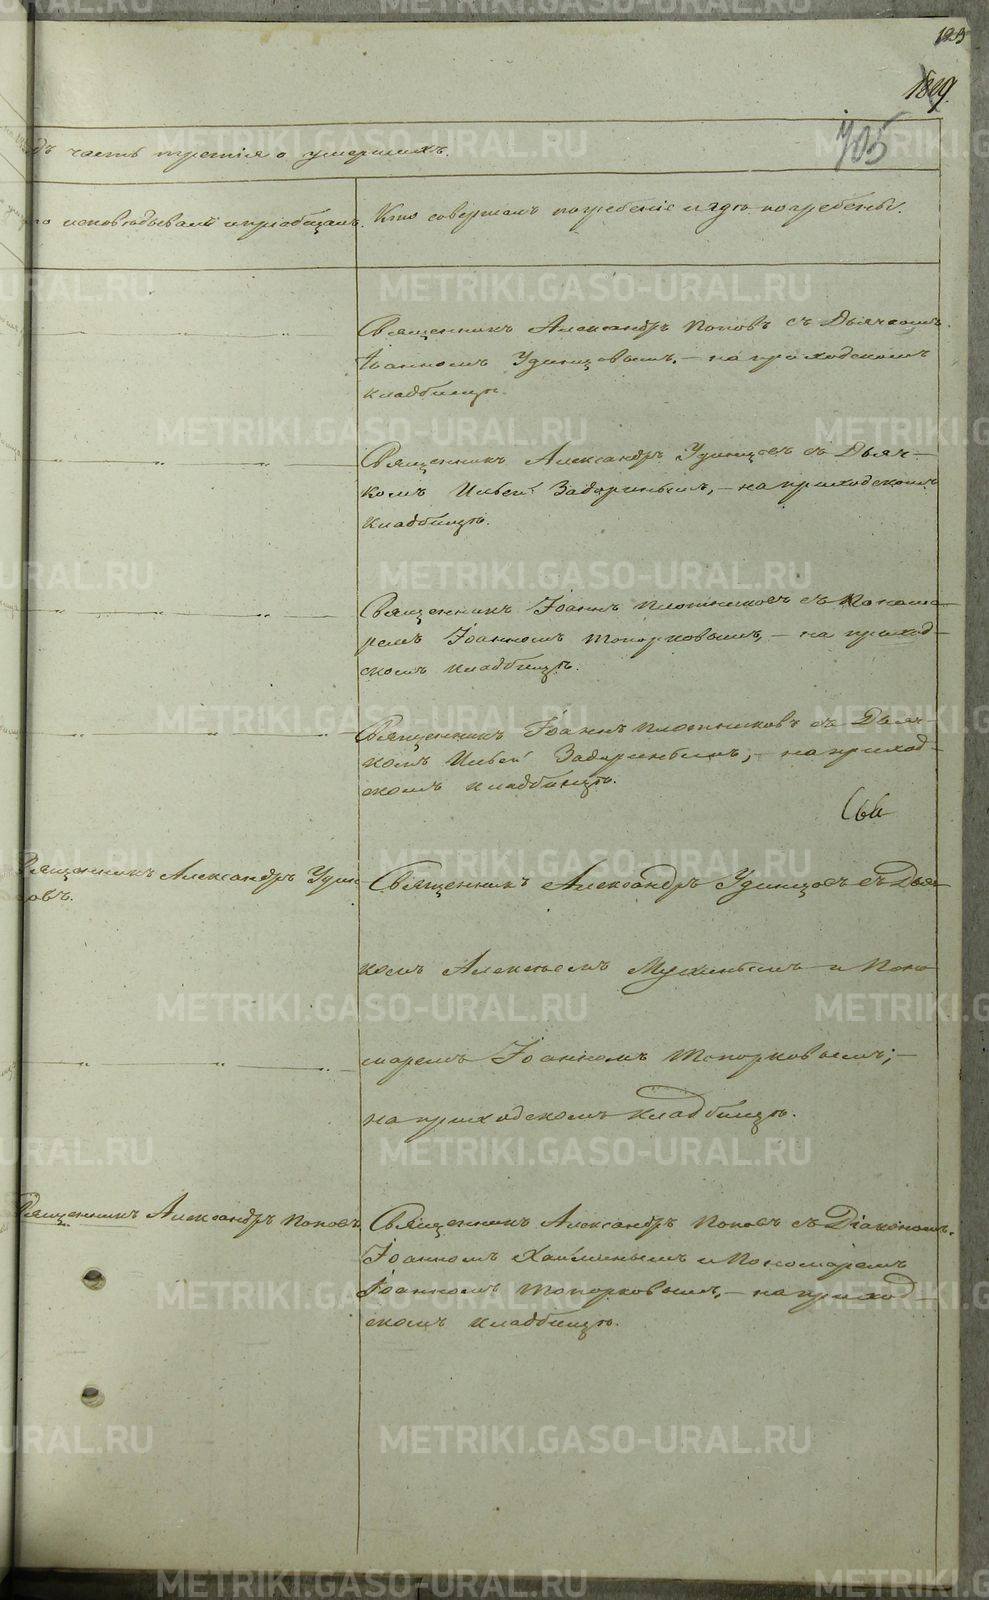 705
дъ часть третія о умершихъ.
то исповѣдывалъ и пріобщалъ.
Кто совершалъ погребеніе и гдѣ погребены.
Священникъ Александръ Поповъ съ Дьячкомъ
Іоанномъ Удинцовымъ, – на приходскомъ
кладбищѣ.
Священникъ Александръ Удинцовъ съ Дьяч-
комъ Ильей Задоринымъ, – на приходскомъ
кладбищѣ.
Священникъ Іоаннъ Плотниковъ съ Понома-
ремъ Іоанномъ Топорковымъ, – на приход-
скомъ кладбищѣ.
Священникъ Іоаннъ Плотниковъ съ Дьяч-
комъ Ильей Задоринымъ, – на приход-
скомъ кладбищѣ.
Священникъ Александръ Удин-
цовъ.
Священникъ Александръ Удинцовъ съ Дьяч-
комъ Алексѣемъ Мухинымъ и Поно-
маремъ Іоанномъ Топорковымъ; –
на приходскомъ кладбищѣ.
Священникъ Александръ Поповъ
Священникъ Александръ Поповъ съ Діакономъ
Іоанномъ и Пономаремъ
Іоанномъ Топорковымъ, – на приход-
скомъ кладбищѣ.
METRIKI.GASO-URAL.RU